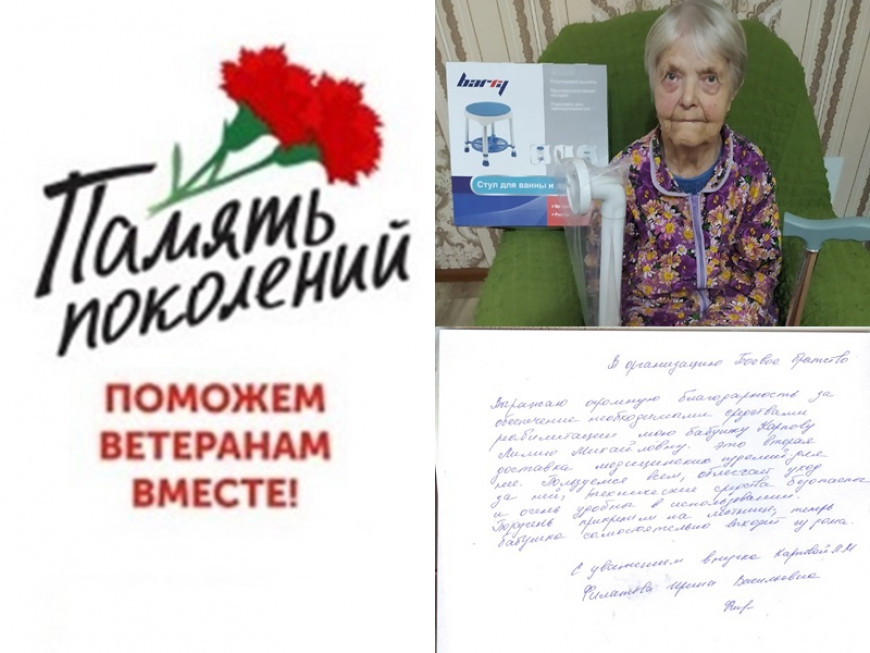 Память
поколений
ПОМОЖЕМ
ВЕТЕРАНАМ
ВМЕСТЕ!
barry
Стул для ванны и
В организацию Боевое братство
Выражаю огромную благодарность за
обеспечение необходимыми средствами
реабилитации мою бабушку Карпову
Лилию Михайловну. Это вторая
доставка медицинских изделий для
не. Пользуемся всем, облегчает уход
за ней, технические средства безопасны
и очень удобны в использовании.
Поручень прикрепим на лестнице, теперь
бабушка самостоятельно выходит из дома.
С уважением внучка Карповой Л.М
Филатова Ирина Васильевна